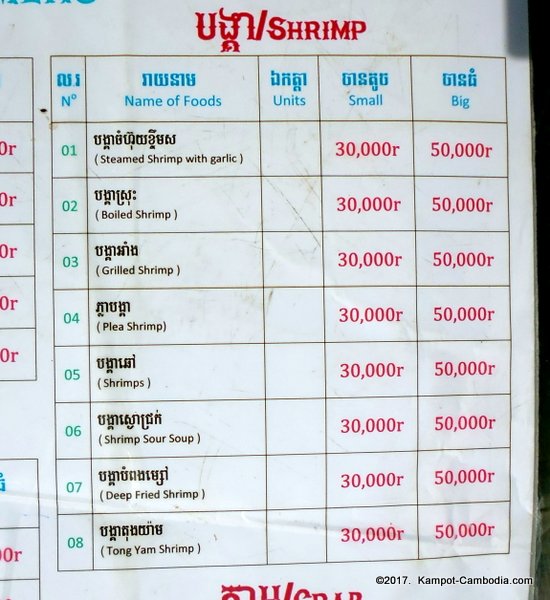 បង្គា/SHRIMP
ល.រ រាយនាម ឯកត្តា ចានតូច ចានធំ
Nº Name of Foods Units Small Big
01 បង្គាចំហ៊ុយខ្ទឹមស 30,000r 50,000r
( Steamed Shrimp with garlic )
02 បង្គាស្រុះ 30,000r 50,000r
( Boiled Shrimp )
03 បង្គាអាំង 30,000r 50,000r
( Grilled Shrimp )
04 ភ្លាបង្គា 30,000r 50,000r
( Plea Shrimp)
05 បង្គាឆៅ 30,000r 50,000r
( Shrimps )
06 បង្គាស្ងោជ្រក់ 30,000r 50,000r
( Shrimp Sour Soup )
07 បង្គាបំពងម្សៅ 30,000r 50,000r
( Deep Fried Shrimp )
08 បង្គាតុងយ៉ាម 30,000r 50,000r
( Tong Yam Shrimp )
©2017. Kampot-Cambodia.com